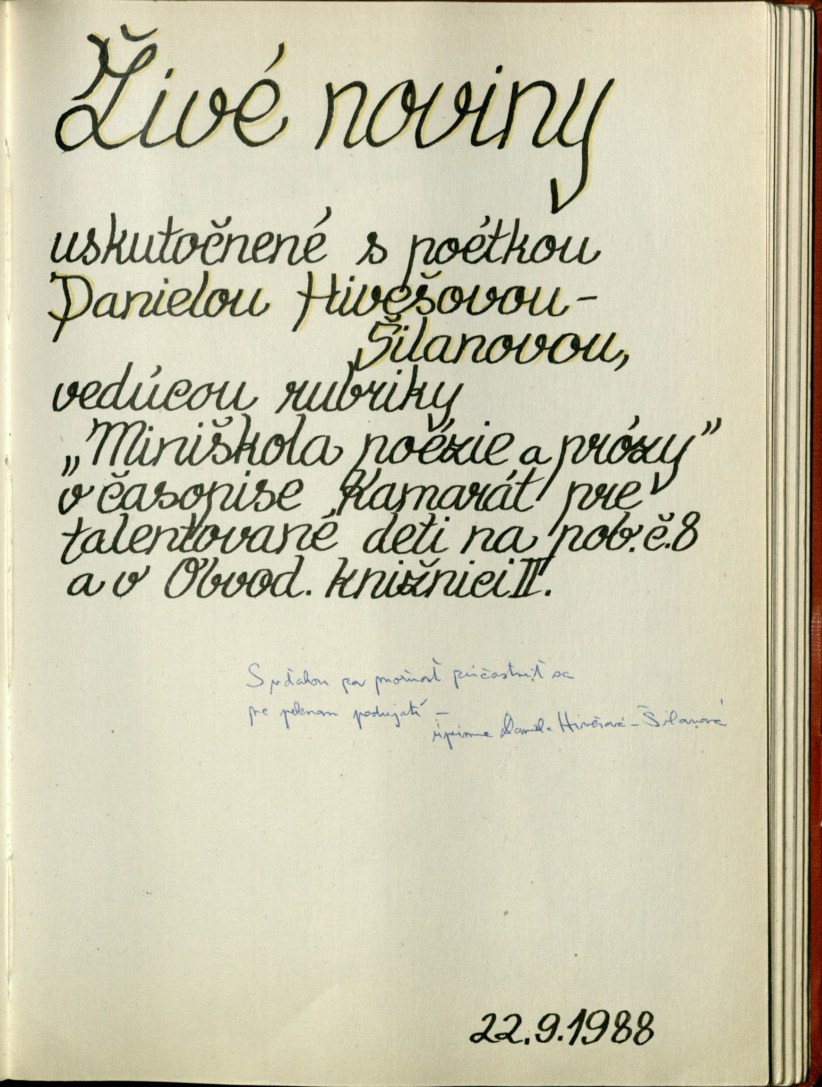 Živé noviny
uskutočnené s poétkou
Danielou Hivešovou-
Šilanovou,
vedúcou rubriky
„Miniškola poézie a prózy”
v časopise Kamarát pre
talentované deti na pob.č.8
a v Obvod. knižnici II.
S vďakou za možnosť zúčastniť sa
na peknom podujatí –
úprimne Daniela Hivešová-Šilanová
22.9.1988